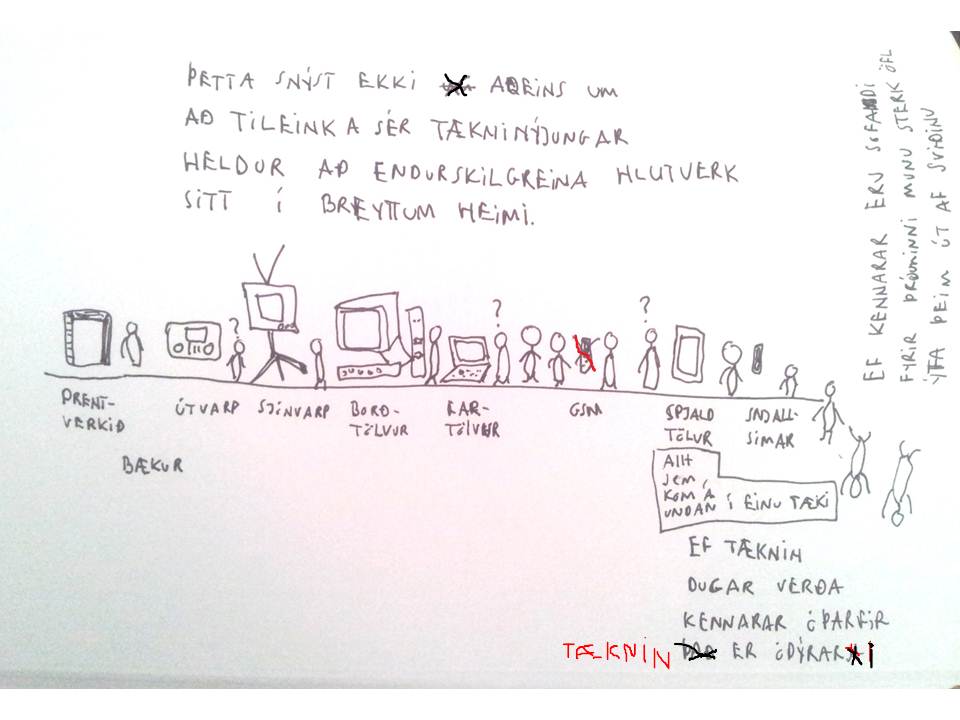 ÞETTA SNÝST EKKI AÐEINS UM
AÐ TILEINKA SÉR TÆKNINÝJUNGAR
HELDUR AÐ ENDURSKILGREINA HLUTVERK
SITT Í BREYTTUM HEIMI.
EF KENNARAR ERU SOFANDI
FYRIR ÞRÓUNINNI MUNU STERK ÖFL
ÝTA ÞEIM ÚT AF SVIÐINU
?
?
?
PRENT-
VERKIÐ
BÆKUR
ÚTVARP
SJÓNVARP
BORÐ-
TÖLVUR
FAR-
TÖLVUR
GSM
SPJALD
TÖLUR
SNJALL-
SÍMAR
Allt
sem
KOM Á
UNDAN Í EINU TÆKI
EF TÆKNIN
DUGAR VERÐA
KENNARAR ÓÞARFIR
TÆKNIN ER ÓDÝRARI